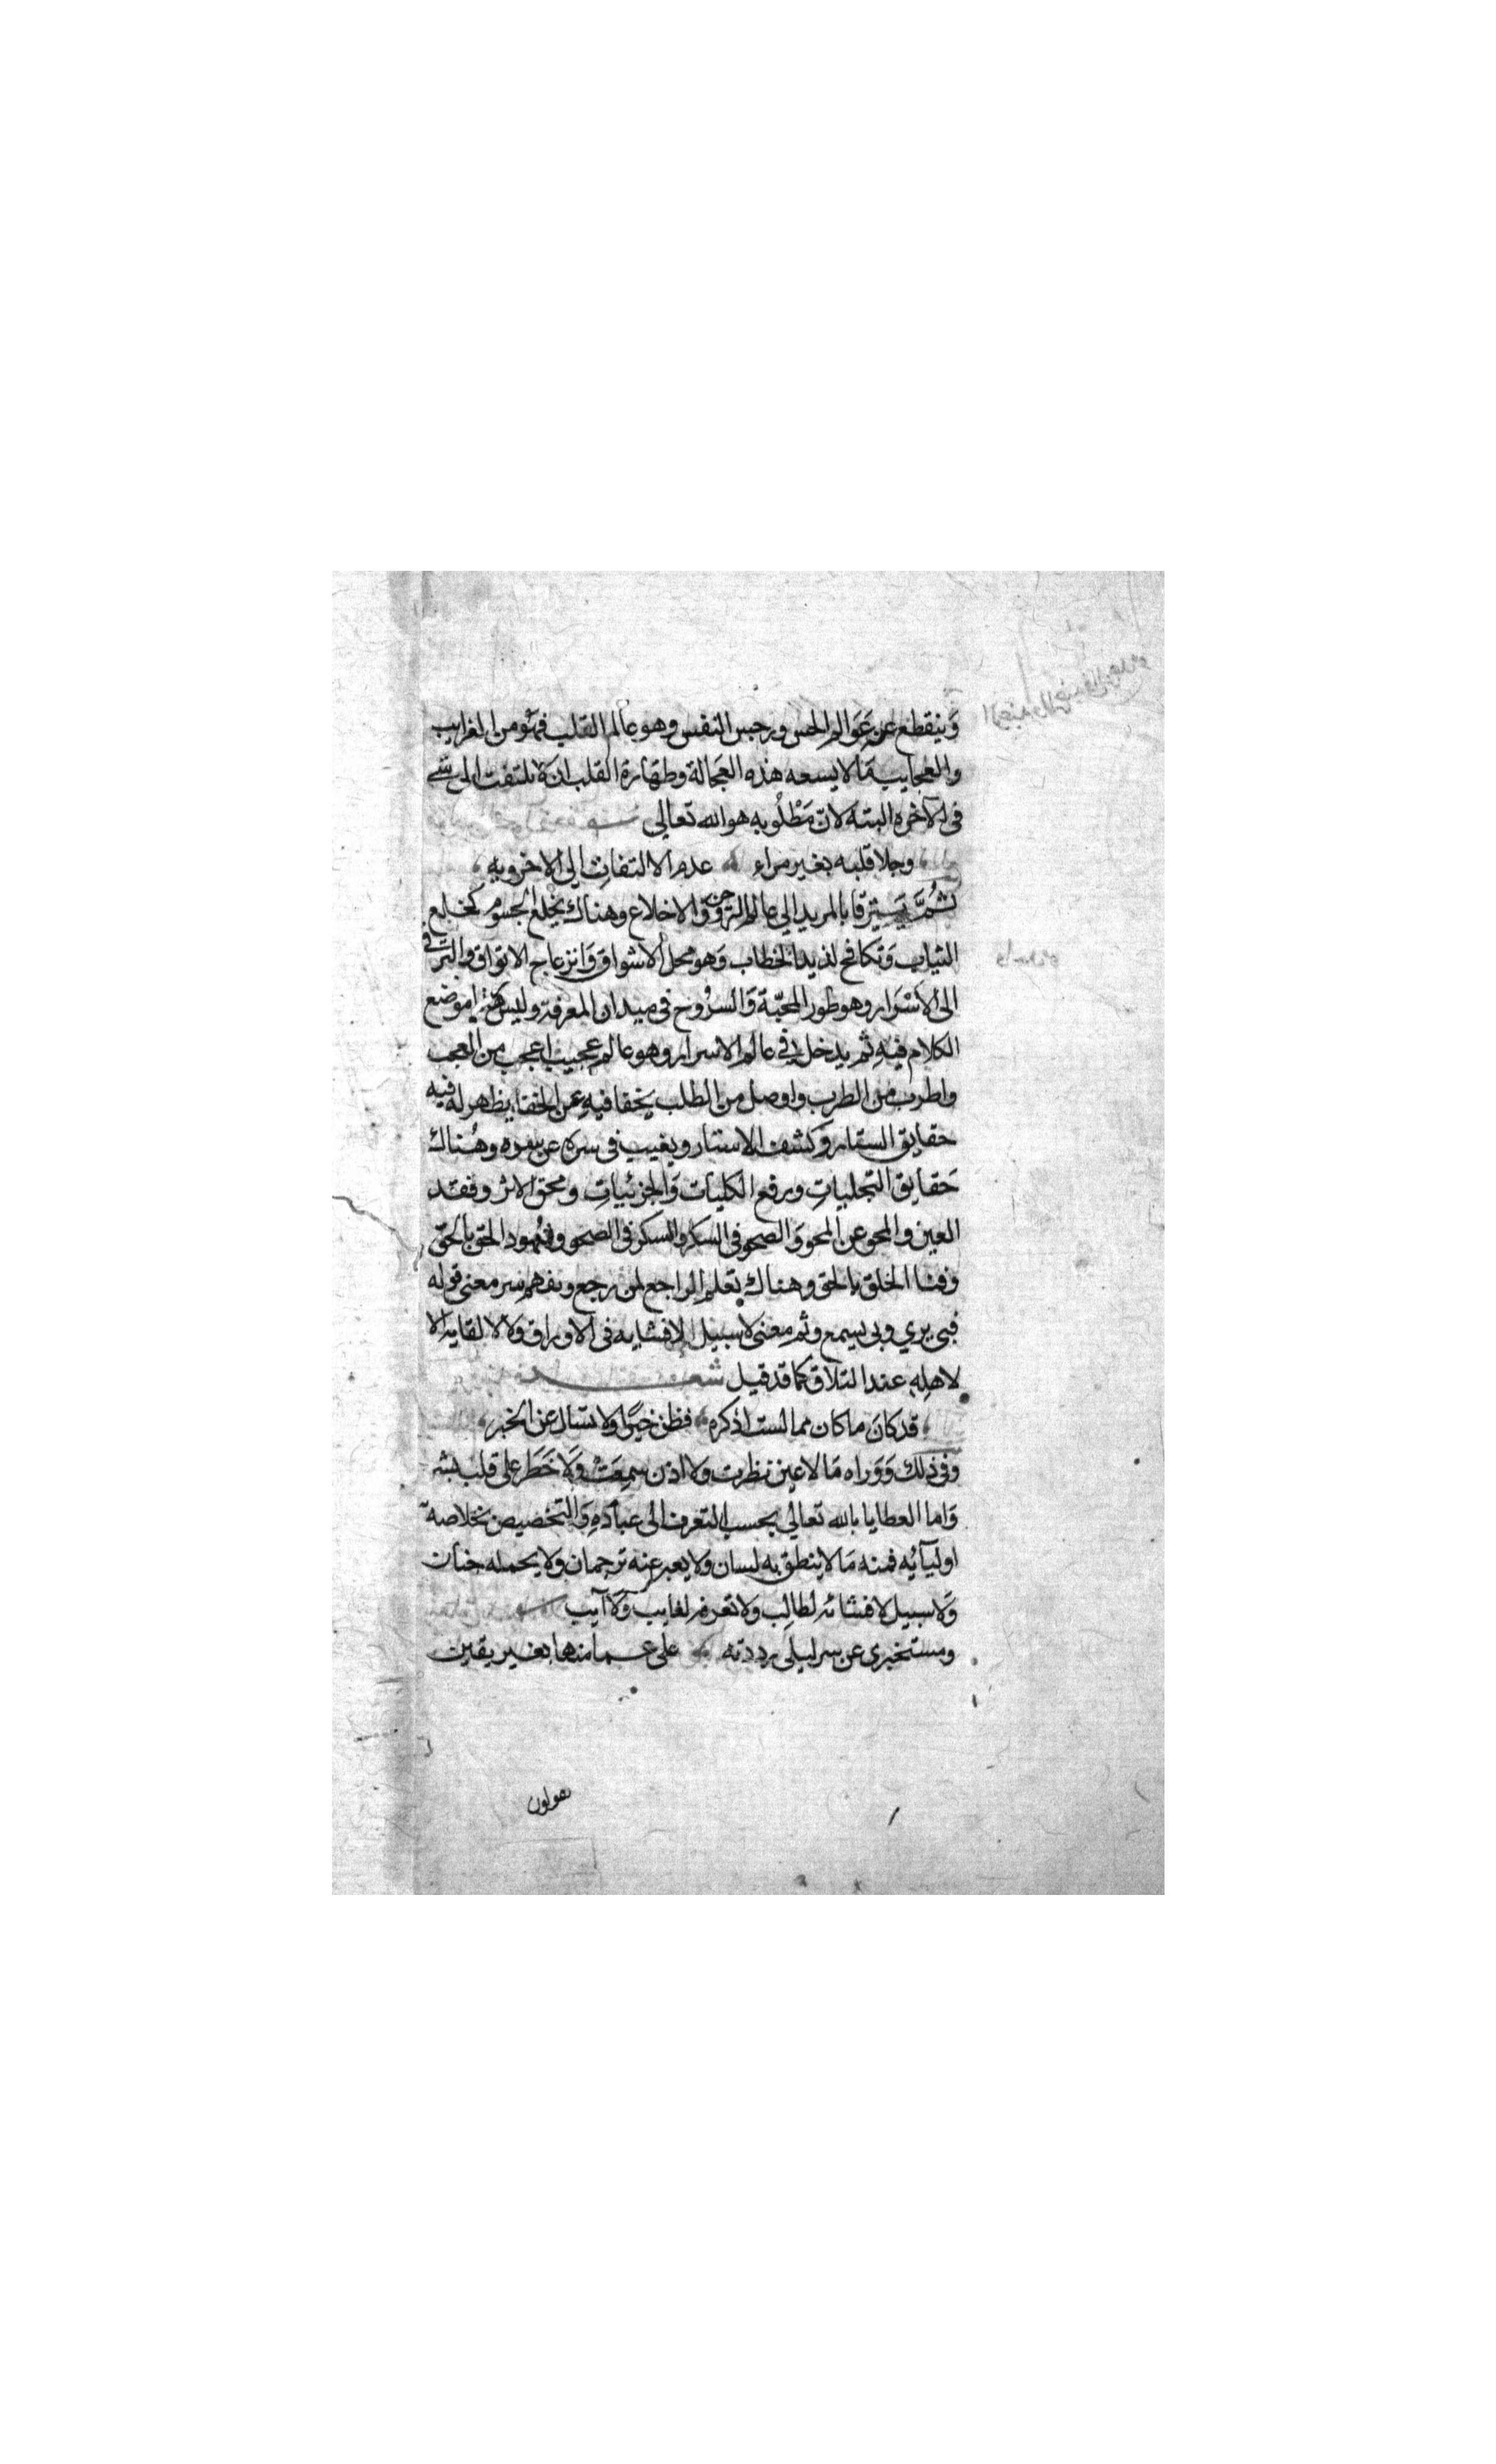 وَينقطع عن عَوَالم الحس ورجس النفس وهو عالم القلب فهو من الغرايب
والعجايب مَا لا يسعه هذه العجالة وطهَارة القلب ان لا يلتفت الى شى
فى الآخره البته لانّ مَطْلُوبه هو الله تعالى
وجلا قلبه بغير مراء عدم الالتفات الى الاخرويه
ثُمَّ يَسْترقا بالمريد الي عالم الروح والاخلاع وهناك يخلع الجسوم كخلع
الثياب وَتكافح لذيذ الخطاب وَهو محل الاشواق وَانزعاج الاتواق والترقى
الى الأسْرَار وهو طور المحبّة وَالسرُوح فى ميدان المعرفة وليس هنا موضع
الكلام فيهِ ثم يدخل في عالم الاسرار وهو عالم عجيب اعجب من العجب
واطرب من الطرب واوصل من الطلب يخفا فيهِ عن الخفا يظهر له فيه
حقايق الستار وَكشف الاستار ويغيب فى سره عن وهُناك
حَقايق التجلياتِ ورفع الكليات وَالجزئياتِ ومحق الاثر وفقد
العين والمحو عن المحو وَالصحو فى السكر والسكر فى الصحو وشهود الحق بالحق
وفنا الخلق بالحق وهناك تعلم الراجع لمن رجع وتفهم سر معنى قوله
فبى يري وبى يسمع وثم معنى لا سبيل لافشايه فى الاوراق وَلا لالقايه الا
لاهله عند التلاق كما قد قيل شعـــر
قد كانَ ما كان مما لست اذكره فظن خيرًا ولا تسال عن الخبر
وفى ذلك وَوَراه مَا لا عين نظرت ولا اذن سمِعَتْ وَلَا خَطَر على قلب بشر
وَاما العطايا بالله تعالي بحسب التعرف الى عبادهِ وَالتخصيص بخلاصة
اوليآئه فمنه مَا لا ينطق به لسان ولا يعبر عنه ترجمان ولا يحمله جنان
وَلا سبيل لافشائه لطالِب ولا تعرف لغايب وَلا آيب
ومستخبرى عن سر ليلى رددته على عـــما منها بغير يقين
يقولون